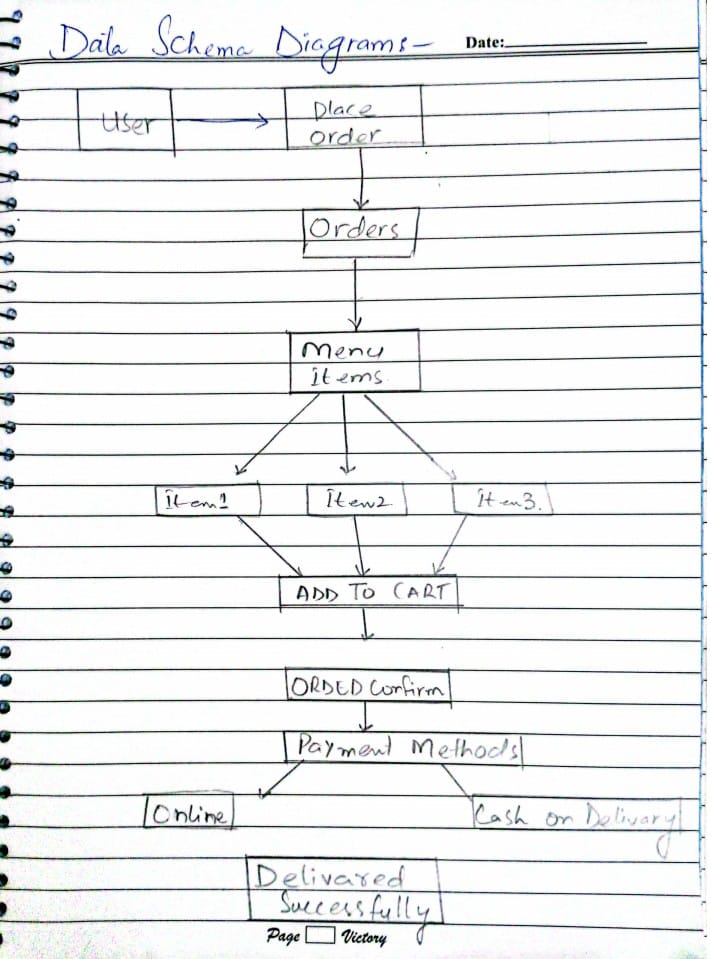 Data Schema Diagrams-
Date:
User
Place
order
Orders
Menu
Items
Item1
Item2
Item3.
ADD TO CART
ORDED Confirm
Payment Methods
Online
Cash on Delivary
Delivared
Successfully
Page Victory